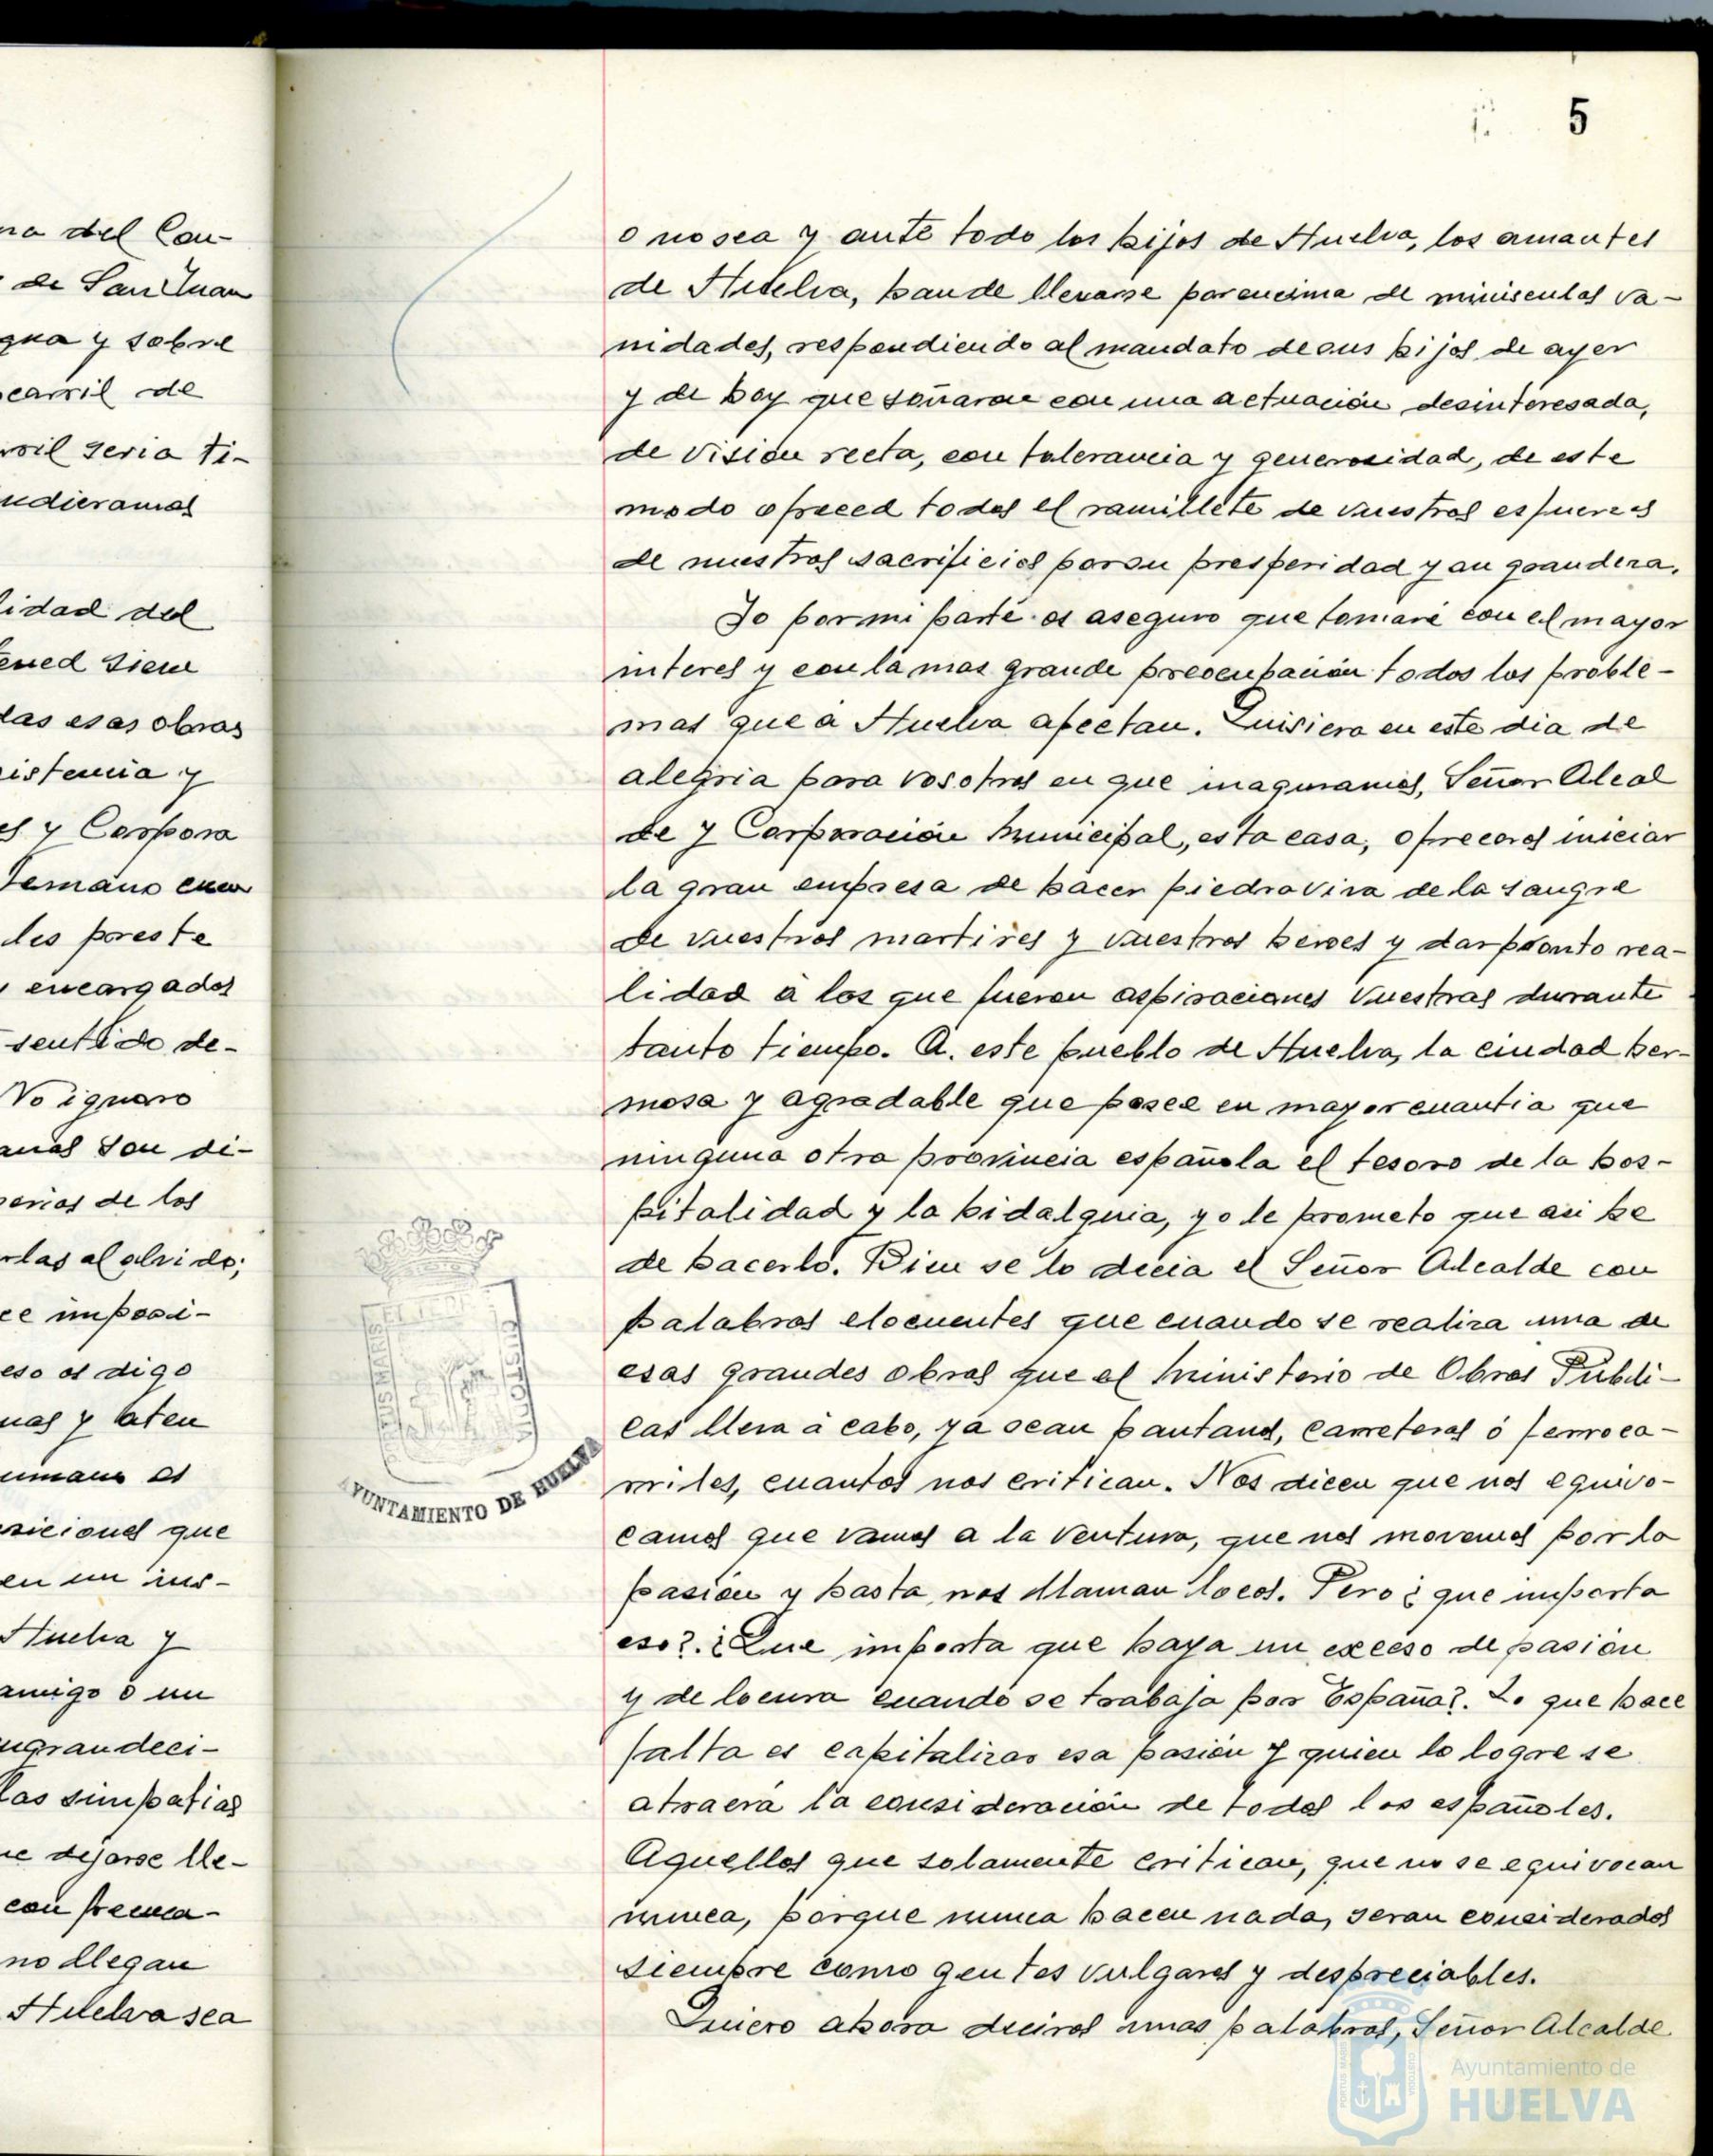 na del Con-
de San Juan
gua y sobre
carril de
rril seria ti-
udieramos
lidad del
ened siem
das esas obras
istencia y
es y Corpora
temano
les preste
encargados
sentido de-
No ignoro
anas son di-
de los
rlas al olvido;
ce imposi-
eso os digo
nas y aten
umano es
siciones que
en un ins-
Huelva y
amigo o un
ngrandeci-
las simpatias
ue dejarse lle-
con frecuen-
no llegan
Huelva sea
5
o no sea y ante todo los hijos de Huelva, los amantes
de Huelva, han de llevarse por encima de minisculas va-
nidades, respondiendo al mandato de sus hijos de ayer
y de hoy que soñaron con una actuación desinteresada,
de visión recta, con tolerancia y generosidad, de este
modo ofreced todos el ramillete de vuestros esfuerzos
de nuestros sacrificios por su prosperidad y su grandeza.
Yo por mi parte os aseguro que tomaré con el mayor
interes y con la mas grande preocupación todos los proble-
mas que a Huelva afectan. Quisiera en este dia de
alegria para vosotros en que inaguramos, Señor Alcal
de y Corporación Municipal, esta casa, ofreceros iniciar
la gran empresa de hacer piedra viva de la sangre
de vuestros martires y vuestros heroes y dar pronto rea-
lidad a los que fueron aspiraciones vuestras durante
tanto tiempo. A. este pueblo de Huelva, la ciudad her-
mosa y agradable que posee en mayor cuantia que
ninguna otra provincia española el tesoro de la hos-
pitalidad y la hidalguia, yo le prometo que asi he
de hacerlo. Bien se lo decia el Señor Alcalde con
palabras elocuentes que cuando se realiza una de
esas grandes obras que el Ministerio de Obras Públi-
cas lleva a cabo, ya sean pantanos, carreteras ó ferroca-
rriles, cuantos nos critican. Nos dicen que nos equivo-
camos que vamos a la ventura, que nos movemos por la
pasión y hasta nos llaman locos. Pero ¿que importa
eso?. ¿Que importa que haya un exceso de pasión
y de locura cuando se trabaja por España?. Lo que hace
falta es capitalizar esa pasión y quien lo logre se
atraera la consideración de todos los españoles.
Aquellos que solamente critican, que no se equivocan
nunca, porque nunca hacen nada, seran considerados
siempre como gentes vulgares y despreciables.
Quiero ahora deciros unas palabras, Señor Alcalde
AYUNTAMIENTO DE HUELVA
Ayuntamiento de
HUELVA